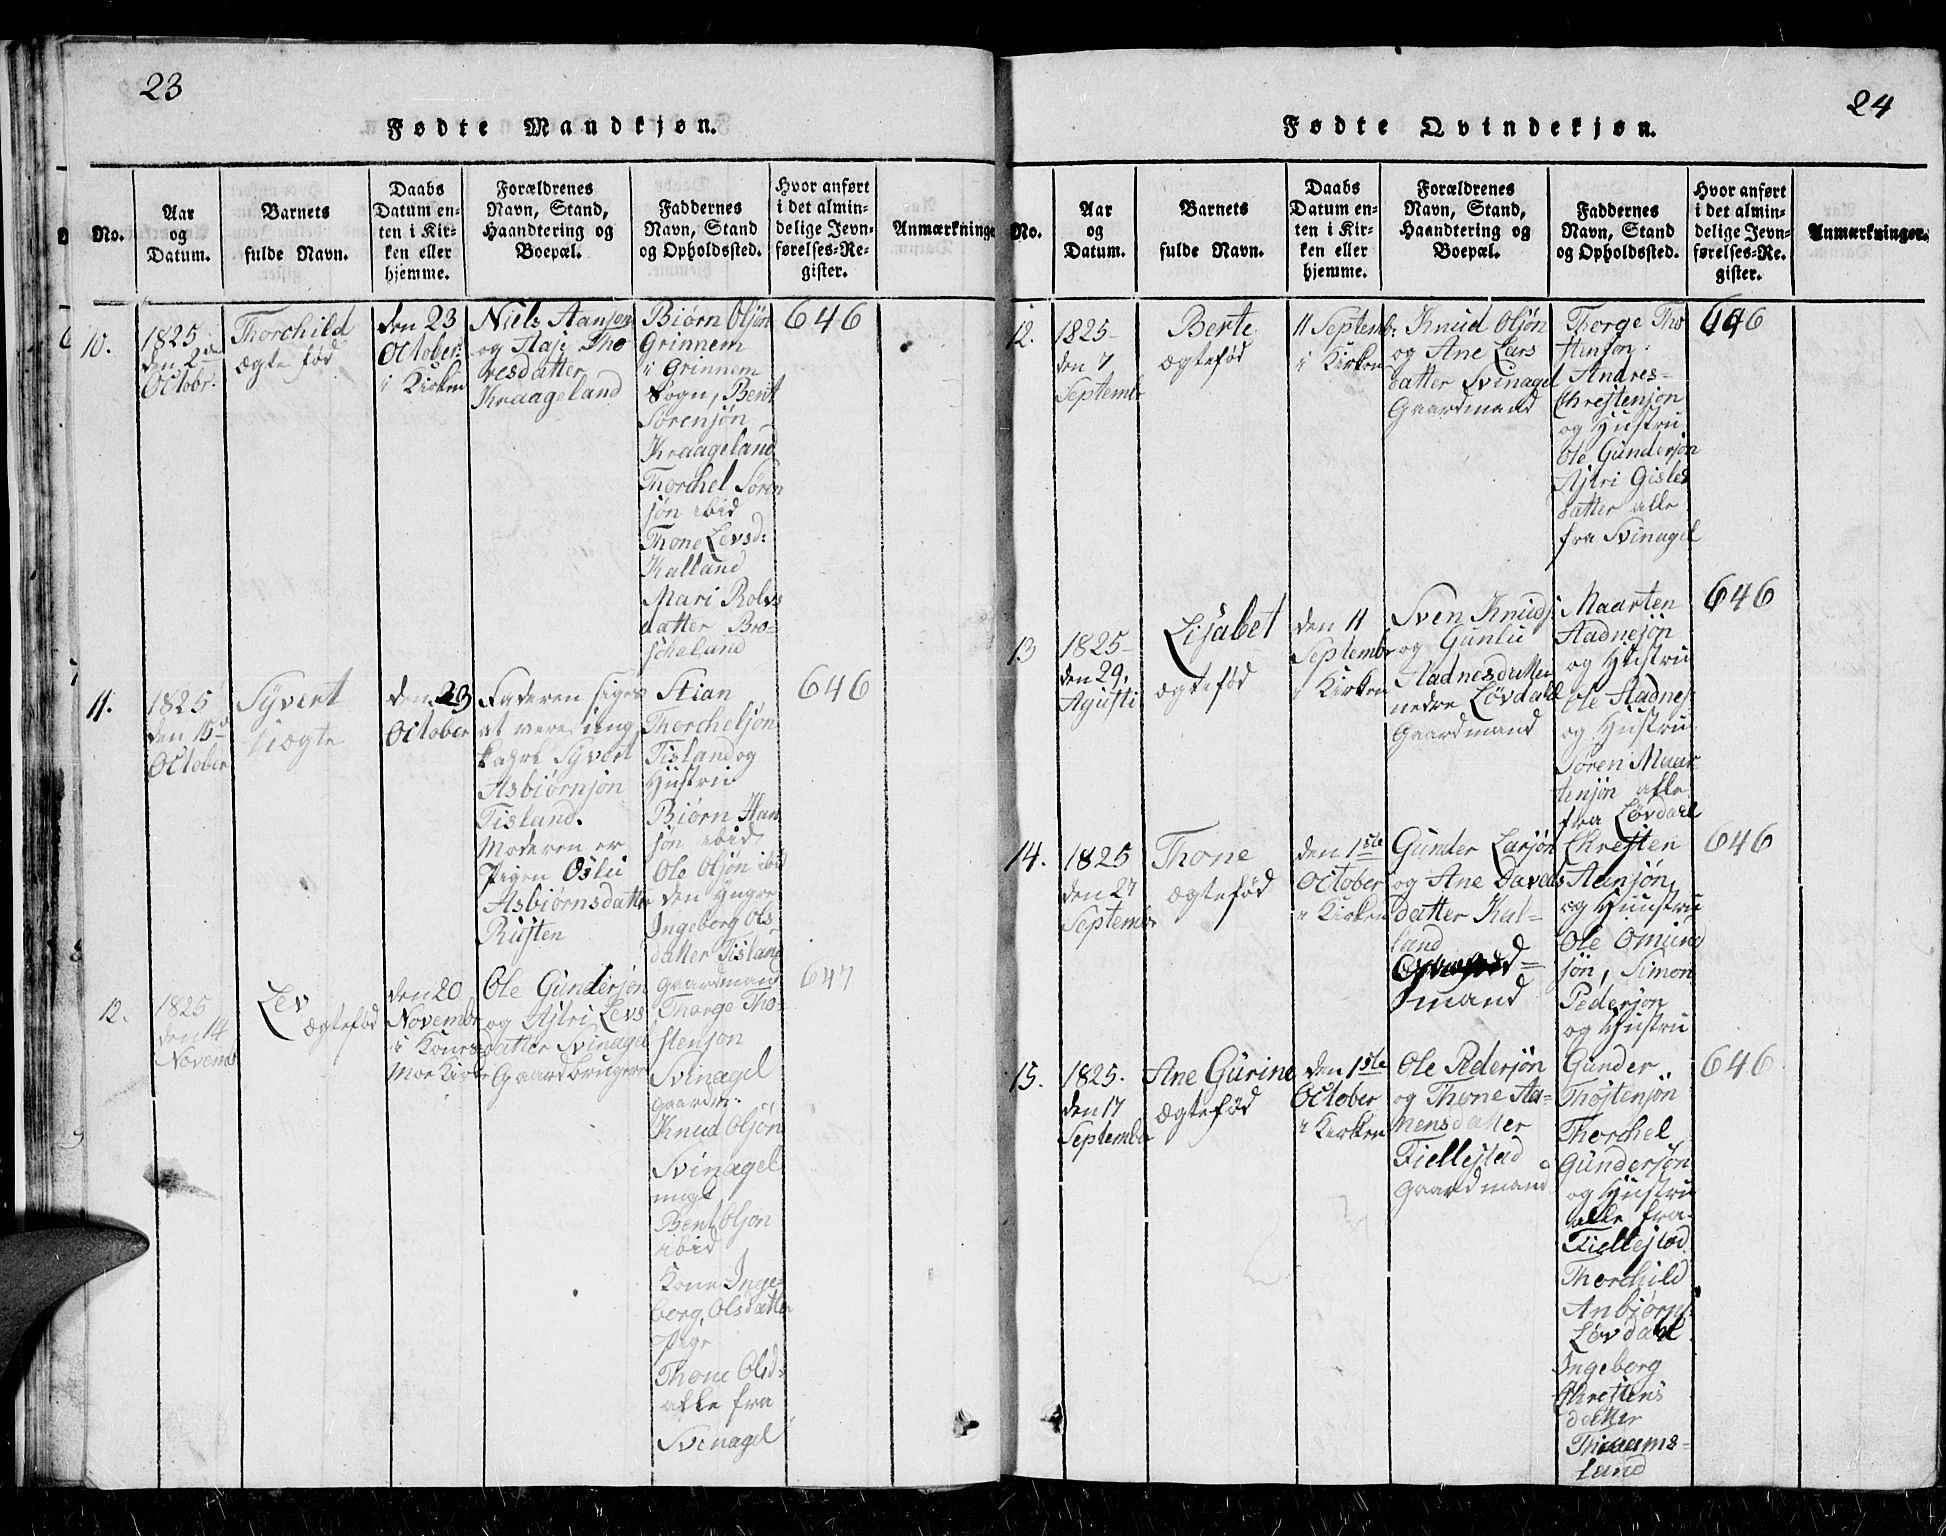 23
Fødte Mandkjøn.
No.
Aar
og
Datum.
Barnets
fulde Navn.
Daabs
Datum en-
ten i Kir-
ken eller
hjemme.
Forældrenes
Navn, Stand,
Haandtering og
Boepæl.
Faddernes
Navn, Stand
og Opholdssted.
Hvor anført
i det almin-
delige Jevn-
førelses-Re-
gister.
Anmærkninge
10.
1825
den 2den
Octobr.
Thorchild
ægte fød
den 23
October
i Kirken
Niels Aansen
og Aasi Tho
resdatter
Kraageland
Biørn Olsøn
Grinnem
i Grinnem
Sogn, Bent
Sørensøn
Kraageland
Thorchel Søren
søn ibid
Thone Levsd:
Kalland
Mari Rolvs
datter Bro-
scheland
646
11.
1825
den 15de
October
Syvert
uægte
den 23
October
Faderen siges
at være ung
Kahrl Syvert
Asbiørnsøn
Tisland.
Moderen er
Pigen Oslu
Asbiørnsdatter
Rusten
Stian
Thorchelsøn
Tisland og
Hustru
Biørn Han
søn ibid
Ole Olsøn ibid
den yngre
Ingeborg Ols
datter Tisland
Gaardmand
646
12.
1825
den 14
Novemb
Lev
ægtefød
den 20
Novembr
i Kours-
moe Kirke
Ole Gundersøn
og Astri Levs
datter Svinagel
Gaardbruger
Thorge Tho-
stensøn
Svinagel
gaardm.
Knud Olsøn
Svinagel
ungk
Bent Olsøn
ibid
Kone Inge-
borg Olsdatter
Pige
Thone Olsd:
alle fra
Svinagel
647
24
Fødte Qvindekjøn.
No.
Aar
og
Datum.
Barnets
fulde Navn.
Daabs
Datum en-
ten i Kir-
ken eller
hjemme.
Forældrenes
Navn, Stand,
Haandtering og
Boepæl.
Faddernes
Navn, Stand
og Opholdssted.
Hvor anført
i det almin-
delige Jevn-
førelses-Re-
gister.
Anmærkninger.
12.
1825-
den 7
Septembr
Berte
ægtefød
11 Septemb:
i Kirken
Knud Olsøn
og Ane Lars
datter Svinagel
Gaardmand
Thorge Tho
stensøn.
Andres-
Chrestensøn
og Hustru
Ole Gundersøn
Astri Gisles
datter alle
fra Svinagel
646
13
1825-
den 29.
Agusti
Lisabet
ægtefød
den 11
Septembr
i Kirken
Sven Knuds
og Gunlu
Aadnesdatter
nedre Løvdall
Gaardmand
Maarten
Aadnesøn
og Hustru
Ole Aadnes
og Hustru
Søren Maar
tensøn alle
fra Løvdall
646
14.
1825
den 27
Septembr
Thone
ægtefød
den 1ste
October
i Kirken
Gunder Larsøn
og Ane Daveds
datter Kal-
land
mand
Chresten
Aansøn
og Huustru
Ole Omund
søn, Simon
Pedersøn
og Hustru
646
15.
1825.
den 17
Septembr
Ane Gurine
ægtefød
den 1ste
October
i Kirken
Ole Pedersøn
og Thone Aa-
nensdatter
Fiellestad
Gaardmand
Gunder
Thostensøn
Thorchel
Gundersøn
og Hustru
alle fra
Fiellestad
Thorchild
Anbiørns
Løvdahl
Ingeborg
Chrestens
datter
Thieaams-
land
646